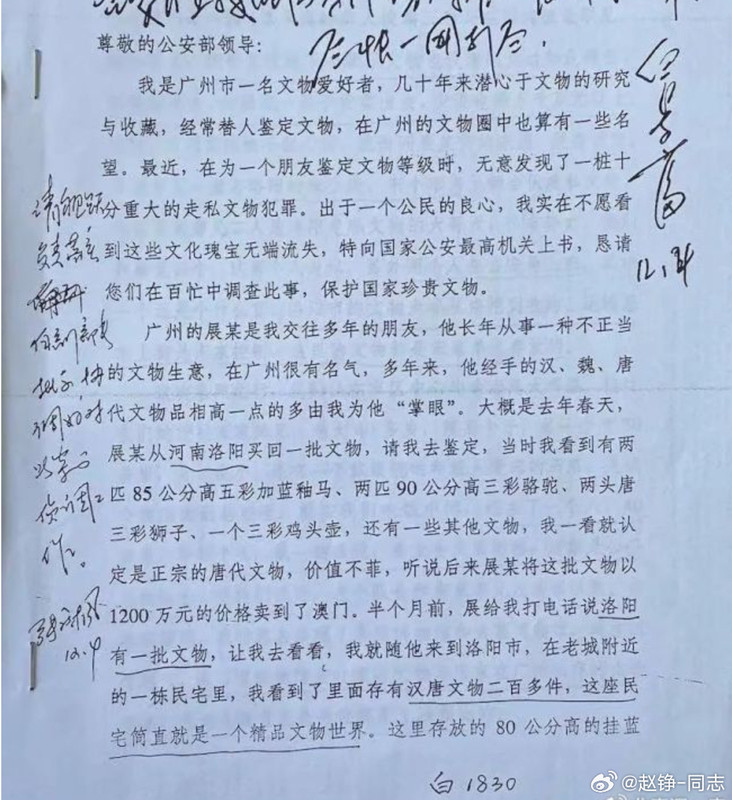 尊敬的公安部领导:
我是广州市一名文物爱好者，几十年来潜心于文物的研究
与收藏，经常替人鉴定文物，在广州的文物圈中也算有一些名
望。最近，在为一个朋友鉴定文物等级时，无意发现了一桩十
分重大的走私文物犯罪。出于一个公民的良心，我实在不愿看
到这些文化瑰宝无端流失，特向国家公安最高机关上书，恳请
您们在百忙中调查此事，保护国家珍贵文物。
12.14
广州的展某是我交往多年的朋友，他长年从事一种不正当
的文物生意，在广州很有名气，多年来，他经手的汉、魏、唐
代文物品相高一点的多由我为他“掌眼”。大概是去年春天，
展某从河南洛阳买回一批文物，请我去鉴定，当时我看到有两
匹 85 公分高五彩加蓝釉马、两匹 90 公分高三彩骆驼、两头唐
三彩狮子、一个三彩鸡头壶，还有一些其他文物，我一看就认
定是正宗的唐代文物，价值不菲，听说后来展某将这批文物以
1200 万元的价格卖到了澳门。半个月前，展给我打电话说洛阳
有一批文物，让我去看看，我就随他来到洛阳市，在老城附近
的一栋民宅里，我看到了里面存有汉唐文物二百多件，这座民
宅简直就是一个精品文物世界。这里存放的 80 公分高的挂蓝
白 1830
@赵铮-同志